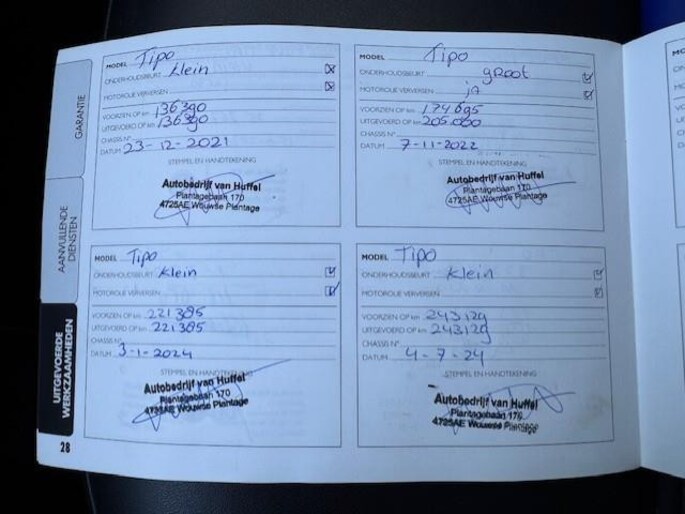 GARANTIE
AANVULLENDE
DIENSTEN
UITGEVOERDE
WERKZAAMHEDEN
28
MODEL Tipo
ONDERHOUDSBEURT klein
MOTOROLIE VERVERSEN
VOORZIEN OP km 136390
UITGEVOERD OP km 136390
CHASSIS N°
DATUM 23-12-2021
STEMPEL EN HANDTEKENING
Autobedrijf van Huffel
Plantagebaan 170
4725AE Wouwse Plantage
MODEL Tipo
ONDERHOUDSBEURT groot
MOTOROLIE VERVERSEN ja
VOORZIEN OP km 174695
UITGEVOERD OP km 205.000
CHASSIS N°
DATUM 7-11-2022
STEMPEL EN HANDTEKENING
Autobedrijf van Huffel
Plantagebaan 170
4725AE Wouwse Plantage
MODEL Tipo
ONDERHOUDSBEURT klein
MOTOROLIE VERVERSEN
VOORZIEN OP km 221385
UITGEVOERD OP km 221385
CHASSIS N°
DATUM 3-1-2024
STEMPEL EN HANDTEKENING
Autobedrijf van Huffel
Plantagebaan 170
4725AE Wouwse Plantage
MODEL Tipo
ONDERHOUDSBEURT klein
MOTOROLIE VERVERSEN
VOORZIEN OP km 243129
UITGEVOERD OP km 243129
CHASSIS N°
DATUM 4-7-24
STEMPEL EN HANDTEKENING
Autobedrijf van Huffel
Plantagebaan 170
4725AE Wouwse Plantage